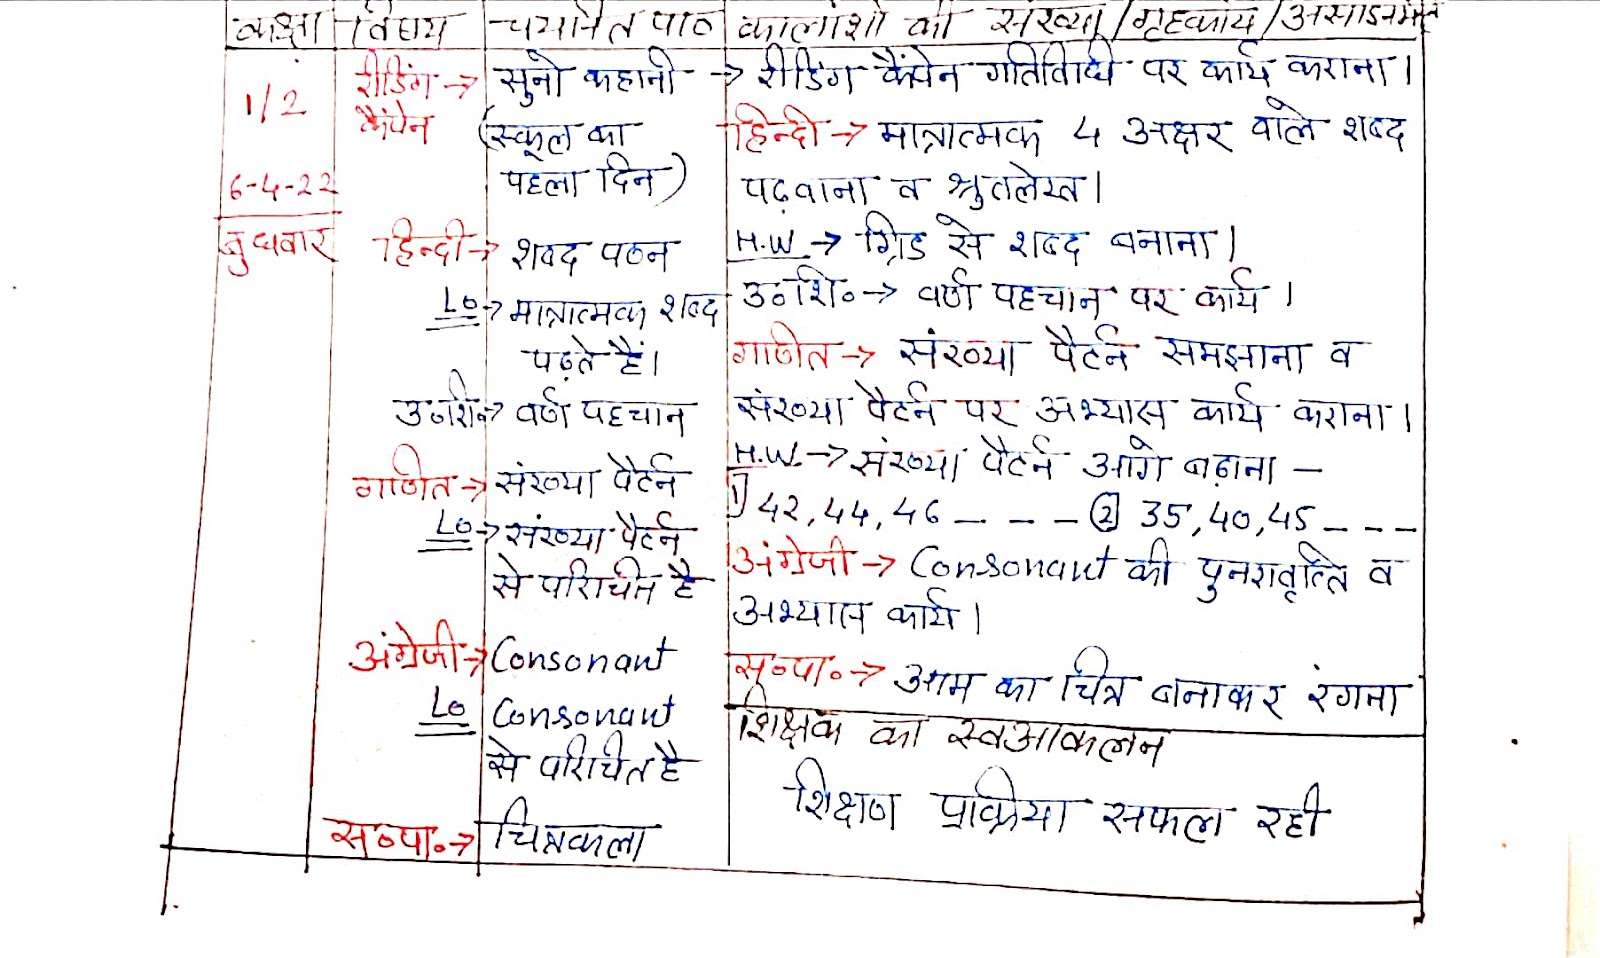 कक्षा विषय चयनित पाठ कालांशो की संख्या/गृहकार्य/असाइनमेंट
1/2
6-4-22
बुधवार
रीडिंग → सुनो कहानी
कैंपेन (स्कूल का
पहला दिन)
हिन्दी → शब्द पठन
Lo → मात्रात्मक शब्द
पढ़ते हैं।
उ०शि० → वर्ण पहचान
गणित → संख्या पैटर्न
Lo → संख्या पैटर्न
से परिचित है
अंग्रेजी → Consonant
Lo Consonant
से परिचित है
स०पा० → चित्रकला
→ रीडिंग कैंपेन गतिविधि पर कार्य कराना।
हिन्दी → मात्रात्मक 4 अक्षर वाले शब्द
पढ़वाना व श्रुतलेख।
H.W → ग्रिड से शब्द बनाना।
उ०शि० → वर्ण पहचान पर कार्य।
गणित → संख्या पैटर्न समझाना व
संख्या पैटर्न पर अभ्यास कार्य कराना।
H.W. → संख्या पैटर्न आगे बढ़ाना –
1) 42, 44, 46 _ _ _ (2) 35, 40, 45 _ _ _
अंग्रेजी → Consonant की पुनरावृत्ति व
अभ्यास कार्य।
स०पा० → आम का चित्र बनाकर रंगना
शिक्षक का स्वआकलन
शिक्षण प्रक्रिया सफल रही